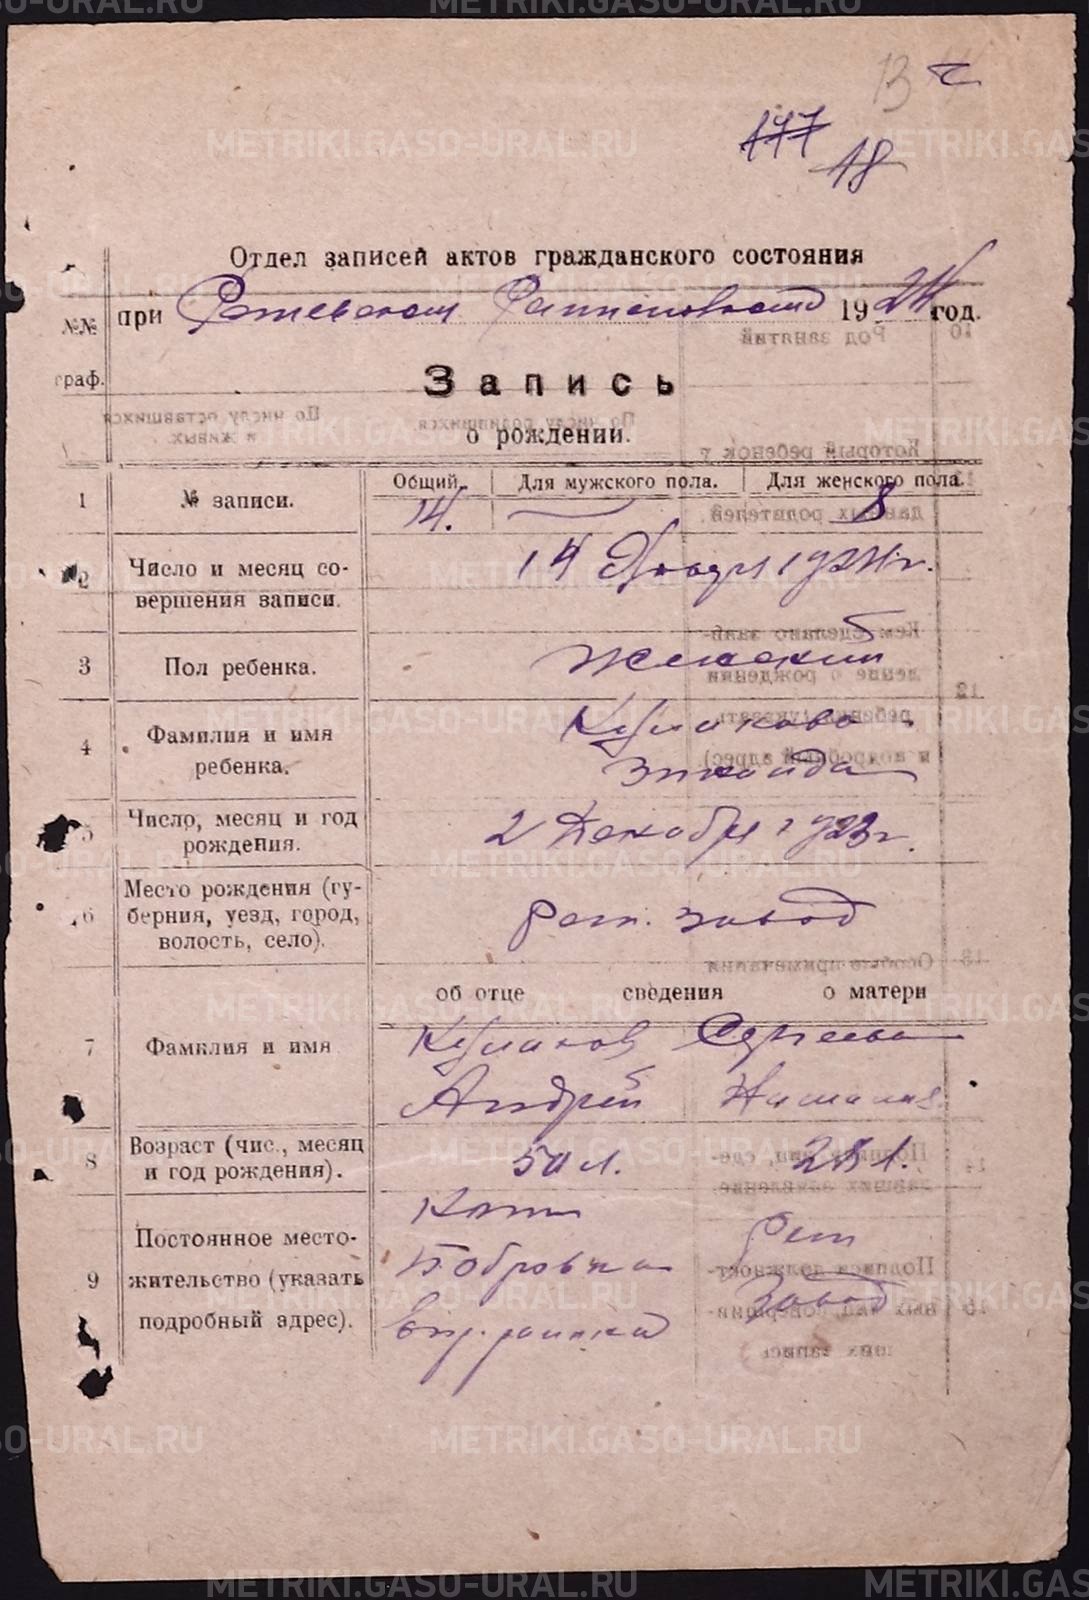 13
177
18
Отдел записей актов гражданского состояния
при Режевском 1924 год.
№№ граф.
Запись
о рождении.
1 № записи. Общий. Для мужского пола. Для женского пола.
14. 8
2 Число и месяц со-
вершения записи.
14 Января 1924 г.
3 Пол ребенка. Женский
4 Фамилия и имя
ребенка.
Куликова
Зинаида
5 Число, месяц и год
рождения.
2 Декабря 1923 г.
6 Место рождения (гу-
берния, уезд, город,
волость, село).
Реж. завод
об отце сведения о матери
7 Фамилия и имя
Куликов Сергеева
Андрей Наталия
8 Возраст (чис., месяц
и год рождения).
50 л. 28 л.
9 Постоянное место-
жительство (указать
подробный адрес).
Бобровка
Реж
Завод
METRIKI.GASO-URAL.RU